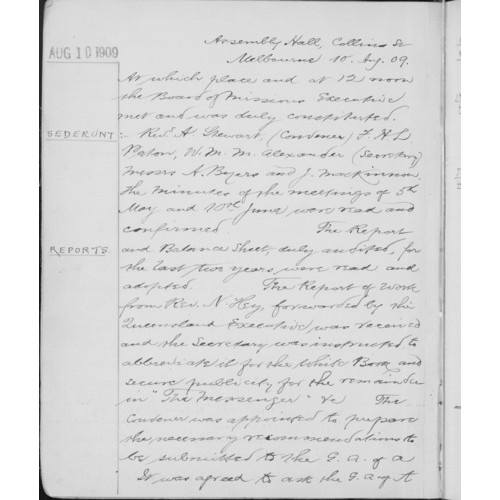 AUG 10 1909
Assembly Hall, Collins St
Melbourne 10. Aug. 09.
At which place and at 12 noon
the Board of Missions Executive
met and was duly constituted.
SEDERUNT
:- Revs A. Stewart, (Convener) F. H. L.
Paton, W. M. M. Alexander (Secretary)
Messrs A. Byers and J. Mackinnon.
The minutes of the meetings of 5th
May and 10th June were read and
confirmed. The Report
REPORTS.
and Balance Sheet, duly audited, for
the last two years were read and
adopted. The Report of Work
from Rev. N. Hey, forwarded by the
Queensland Executive was received
and the Secretary was instructed to
abbreviate it for the White Book and
secure publicity for the remainder
in "The Messenger" &c The
Convener was appointed to prepare
the necessary recommendations to
be submitted to the G. A. of A
It was agreed to ask the G. A. of A